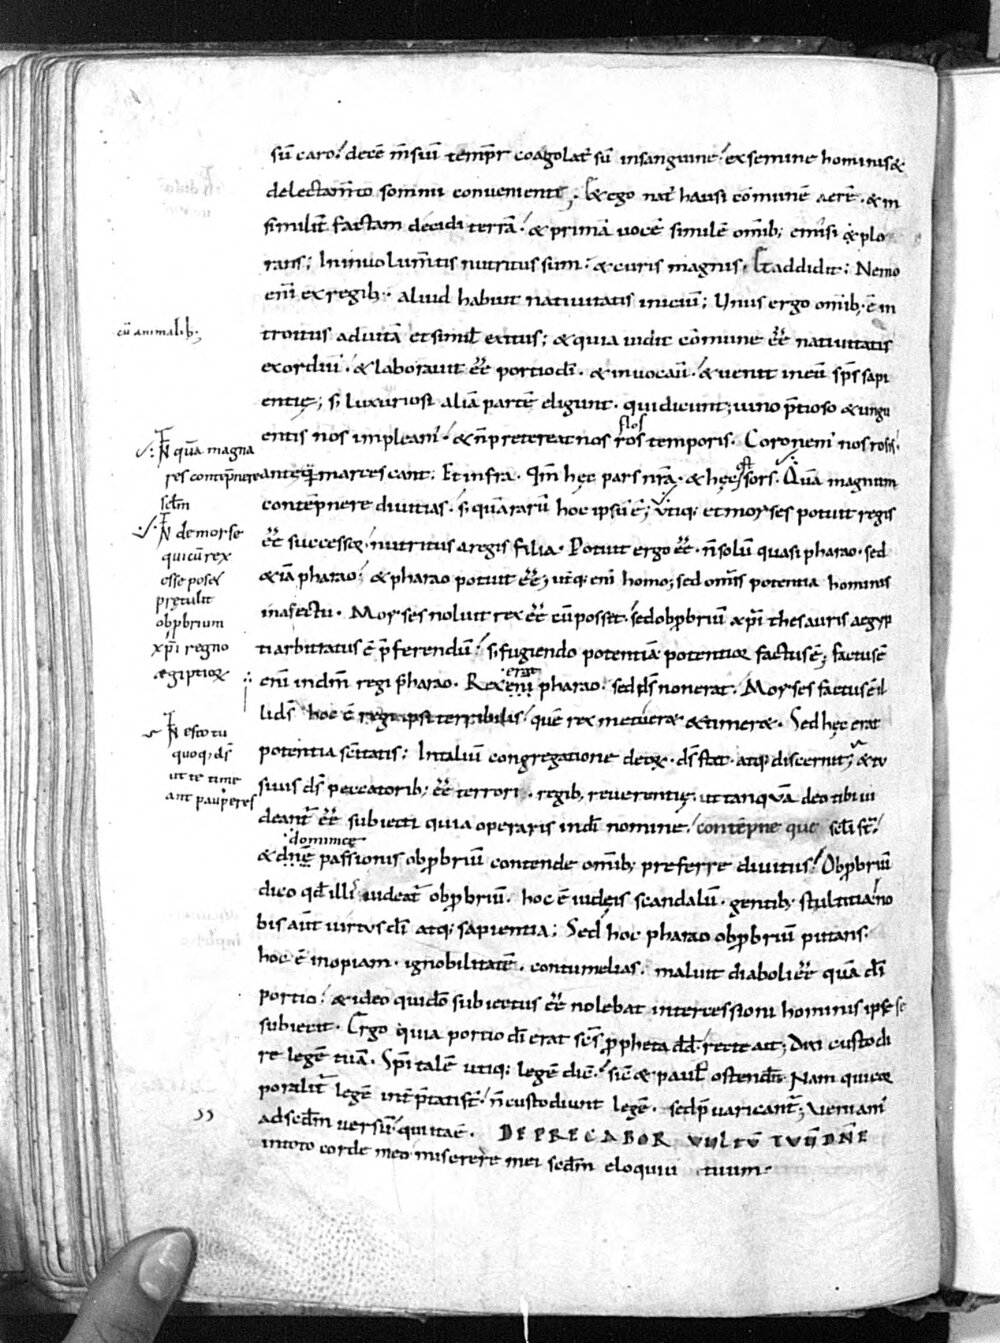 sū caro. decē m̄siū temp̄r coagolat᷒ sū insanguine. exsemine hominis &
delectam̄to somnii conveniente; Et ego nat᷒ hausi cōmunē aerē · & in
similit᷒ factam decidi terrā. & primā vocē similē omīb; emisi & plo
rans; In involum̄tis nutritus sum · & curis magnis. Et addidit: Nemo
enī ex regib; aliud habuit nativitatis iniciū; Unus ergo omīb; ē in
troitus ad vitā et simil̄ exitus; & quia vidit cōmune eē nativitatis
cū animalib;
exordiū · & laboravit eē portio dī · & invocavi · & venit in eū sp̄s sapi
entię; s; luxuriosi aliā partē eligunt. qui dicunt; vino p̄tioso & ungu
entis nos impleam᷒ · & n̄ pretereat nos flos temporis. Coronem᷒ nos rosis
ante q̄ marcescant. Et infra. Qm̄ hęc pars nr̄a · & hęc ē sors. Quā magnum
contēpnere divitias. s; quā rarū hoc ipsū ē; utiq; et morses potuit regis
eē successor · nutritus a regis filia. Potuit ergo eē · n̄ solū quasi pharao · sed
& iā pharao; & pharao potuit eē; utiq; enī homo; sed omīs potentia hominis
in afectu. Moyses noluit rex eē cū posset. sed obp̄briū xp̄i thesauris aegyp
ti arbitratus ē p̄ferendū. s; fugiendo potentiā potentior factus ē; factus ē
enī in dm̄ regi pharao. Rex erat pharao. sed ds̄ non erat. Moyses factus ē il
li ds̄ hoc ē regi ipsi terribilis · quē rex metueret & timeret. Sed hęc erat
potentia sc̄itatis: In taliū congregatione deor̄ · ds̄ stat · atq; discernit; & tu
suius ds̄ peccatorib; eē terrori. regib; reverentię. ut tanquā deo tibi vi
deant᷒ eē subiecti quia operaris in dī nomine. contēpne que sc̄li s̄t.
& dominicę passionis obp̄briū contende omīb; preferre divitiis. Obp̄briū
dico qd̄ illis videat᷒ obp̄briū. hoc ē iudeis scandalū · gentib; stultitia no
bis aūt virtus dī atq; sapientia; Sed hoc pharao obp̄briū putans.
hoc ē inopiam · ignobilitatē · contumelias. maluit diaboli eē quā dī
portio. & ideo quidō subiectus eē nolebat intercessioni hominis ipse se
subiecit. Ergo quia portio dī erat sc̄s p̄pheta dd̄. recte ait; Dixi custodi
re legē tuā. Sp̄italē utiq; legē dic̄. sic̄ & paul᷒ ostendit Nam qui cor
poralit᷒ legē int̄p̄tati s̄t. n̄ custodiunt legē. sed p̄varicant᷒; Veniam᷒
ad sc̄dm versū. qui ita ē. DEPRECABOR VULTŪ TUŪ DN̄E
in toto corde meo miserere mei sc̄dm eloquiū tuum.
N̄ quā magna
res contēpnere
sc̄lm
N̄ de morse
qui cū rex
esse posset
prętulit
obp̄brium
xp̄i regno
ęgiptior̄
N̄ esto tu
quoq; ds̄
ut te time
ant paup̄eres